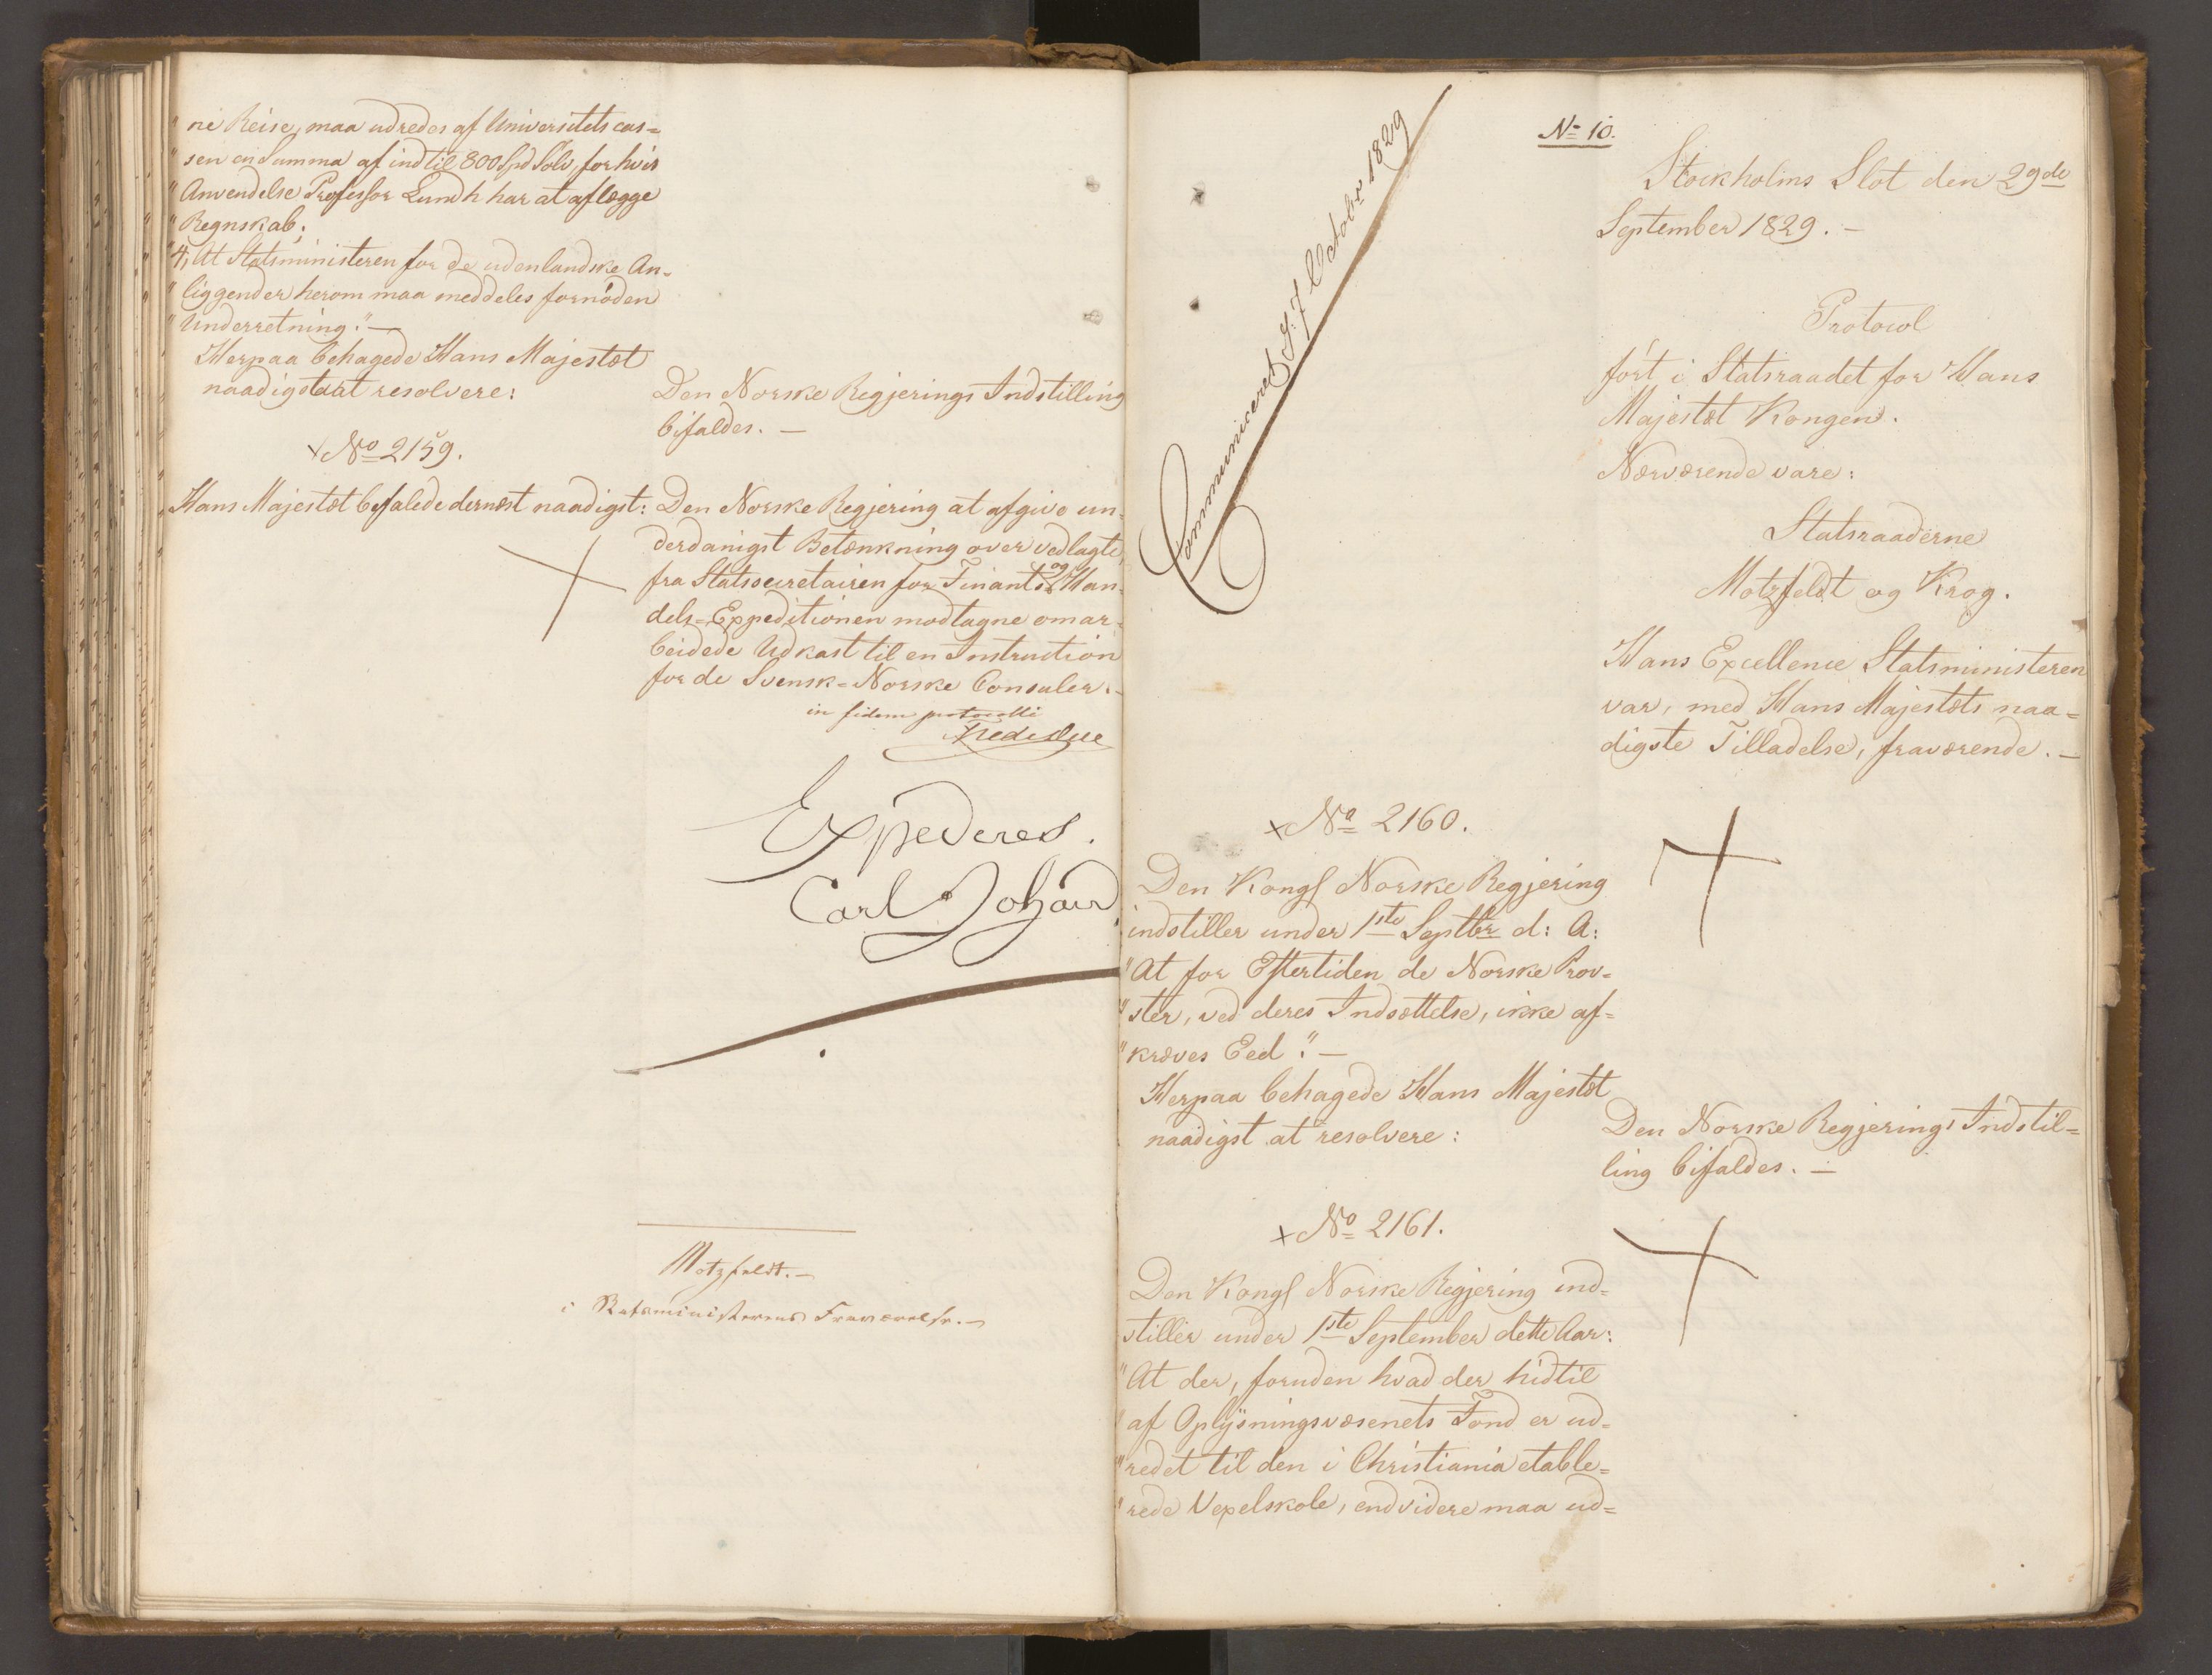 "ne Reise, maa udredes af Universitets cas=
"sen en Summa af indtil 800 Spd Sølv, for hvis
"Anvendelse Professor Lundh har at aflægge
"Regnskab;
"4, At Statsministeren for de udenlandske An=
"liggender herom maa meddeles fornöden
"Underretning." —
Herpaa behagede Hans Majestæt
naadigst at resolvere:
Den Norske Regjerings Indstilling
bifaldes. —
x No 2159.
Hans Majestæt befalede dernæst naadigst:
Den Norske Regjering at afgive un=
derdanigst Betænkning over vedlagte,
fra Statssecretairen for Finants og Han=
dels=Expeditionen modtagne omar=
beidede Udkast til en Instruction
for de Svensk=Norske Consuler. —
in fidem protocolli
Fred. Due
Expederes.
Carl Johan
Motzfeldt. —
i Statsministerens Fraværelse. —
Communiceret d: 7 Octobr 1829
No 10.
Stockholms Slot den 29de
September 1829. —
Protocol
fört i Statsraadet for Hans
Majestæt Kongen.
Nærværende vare:
Statsraaderne
Motzfeldt og Krog.
Hans Excellence Statsministeren
var, med Hans Majestæts naa=
digste Tilladelse, fraværende. —
x No 2160.
Den Kongl Norske Regjering
indstiller under 1ste Septbr d: A:
"At for Eftertiden de Norske Prov=
"ster, ved deres Indsættelse, ikke af=
"kræves Eed." —
Herpaa behagede Hans Majestæt
naadigst at resolvere:
Den Norske Regjerings Indstil=
ling bifaldes. —
x No 2161.
Den Kongl Norske Regjering ind=
stiller under 1ste September dette Aar:
"At der, foruden hvad der hidtil
"af Oplysningsvæsenets Fond er ud=
"redet til den i Christiania etable=
"rede Vexelskole, endvidere maa ud=